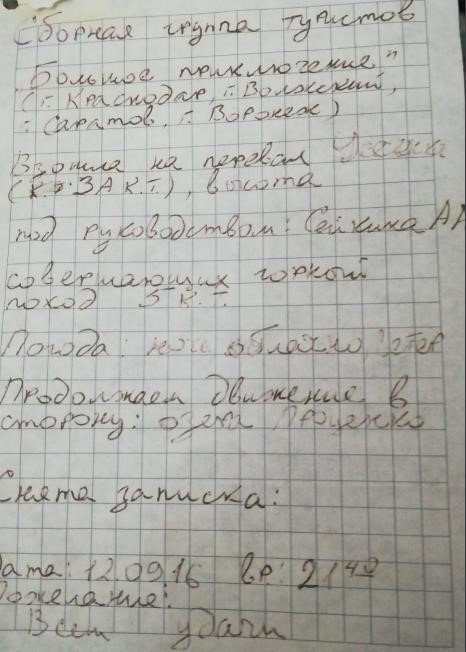 Сборная группа туристов
„Большое приключение"
(г. Краснодар, г. Волжский,
г. Саратов, г. Воронеж)
Взошла на перевал
3А К.Т.), высота
под руководством: Сейкина АА
совершающих горный
поход 5 к.т.
Погода: ночь облачно, ветер
Продолжаем движение в
сторону: озера Проценко
Снята записка:
Дата: 12.09.16 вр: 21 40
Пожелание:
Всем удачи